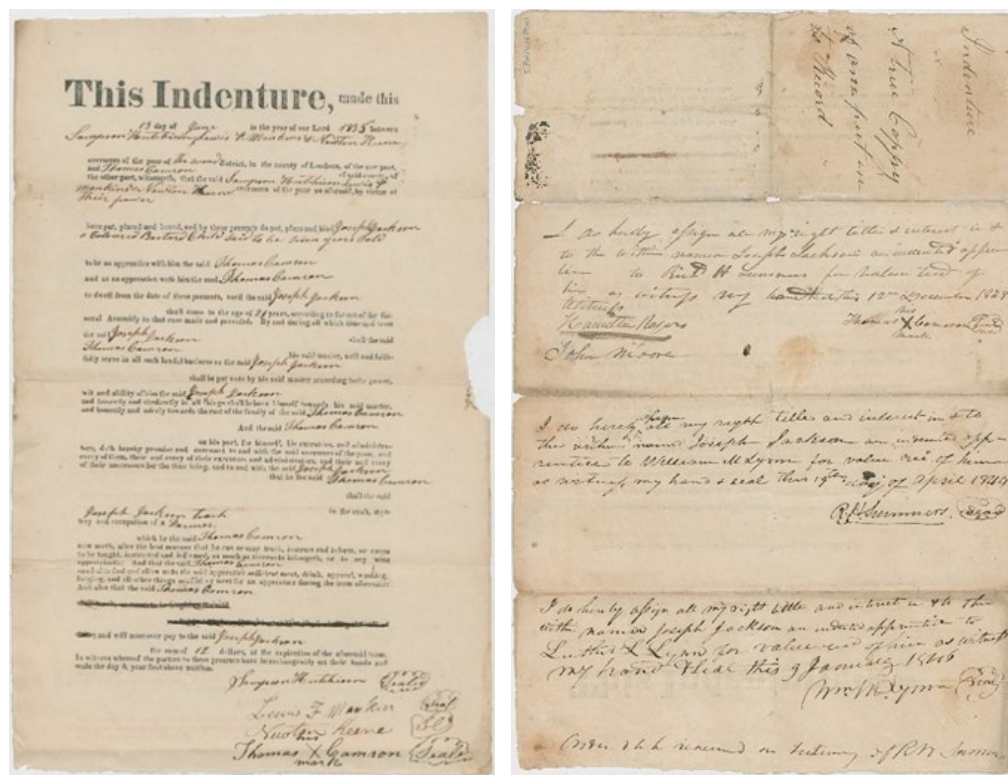 This Indenture, made this
13 day of June in the year of our Lord 1835 between
Sampson Hutchison Lewis F Mankin & Newton Keene
overseers of the poor of the district, in the county of Loudoun, of the one part,
and Thomas Camron of said county, of
the other part, witnesseth, that the said Sampson Hutchison Lewis F
Mankin & Newton Keene overseers of the poor as aforesaid, by virtue of
their power
have put, placed and bound, and by these presents do put, place and bind Joseph Jackson
a Coloured Bastard Child Said to be Seven years old
to be an apprentice with him the said Thomas Camron
and as an apprentice with him the said Thomas Camron
to dwell from the date of these presents, until the said Joseph Jackson
shall come to the age of 21 years, according to the act of the General
Assembly in that case made and provided. By and during all which time and term
the said Joseph Jackson shall the said
Thomas Camron
his said master, well and faithfully
serve in all such lawful business as the said Joseph Jackson
shall be put unto by his said master according to the power,
wit and ability of him the said Joseph Jackson
and honestly and obediently in all things shall behave himself towards his said master,
and honestly and orderly towards the rest of the family of the said Thomas Camron
And the said Thomas Camron
on his part, for himself, his executors, and administrators,
doth hereby promise and covenant to and with the said overseers of the poor, and
every of them, their and every of their executors and administrators, and their and every
of their successors for the time being, and to and with the said Joseph Jackson
that he the said Thomas Camron
shall the said
Joseph Jackson teach in the craft, mystery
and occupation of a Farmer
which he the said Thomas Camron
now useth, after the best manner that he can or may teach, instruct and inform, or cause
to be taught, instructed and informed, as much as thereunto belongeth, or in any wise
appertaineth: And that the said Thomas Camron
shall also find and allow unto the said apprentice sufficient meat, drink, apparel, washing,
lodging, and all other things needful or meet for an apprentice during the term aforesaid:
And also that the said Thomas Camron
and will moreover pay to the said Joseph Jackson
the sum of 12 dollars, at the expiration of the aforesaid term.
In witness whereof the parties to these presents have interchangeably set their hands and
seals the day & year first above written.
Sampson Hutchison (Sealed)
Lewis F Mankin (Seal)
Newton Keene
his
Thomas X Camron (Sealed)
mark
Indenture
A true Coppy
of one put on
to Record
I do hereby assign all my right title & interest in &
to the within named Joseph Jackson an indented
to Rich'd H Summers for value rec'd of
him as witness my hand this 12th December 1838
Witness
his
Thomas X Camron
mark
Hamilton Rogers
John Moore
I do hereby assign all my right title and interest in & to
the within named Joseph Jackson an indented apprentice
to William M Lynn for value rec'd of him
as witness my hand & seal this day of April
R H Summers (Seal)
I do hereby assign all my right title and interest in & to the
within named Joseph Jackson an indented apprentice to
Luther L Lynn for value rec'd of him as witness
my hand & seal this 9 January 1846
Wm M Lynn (Seal)